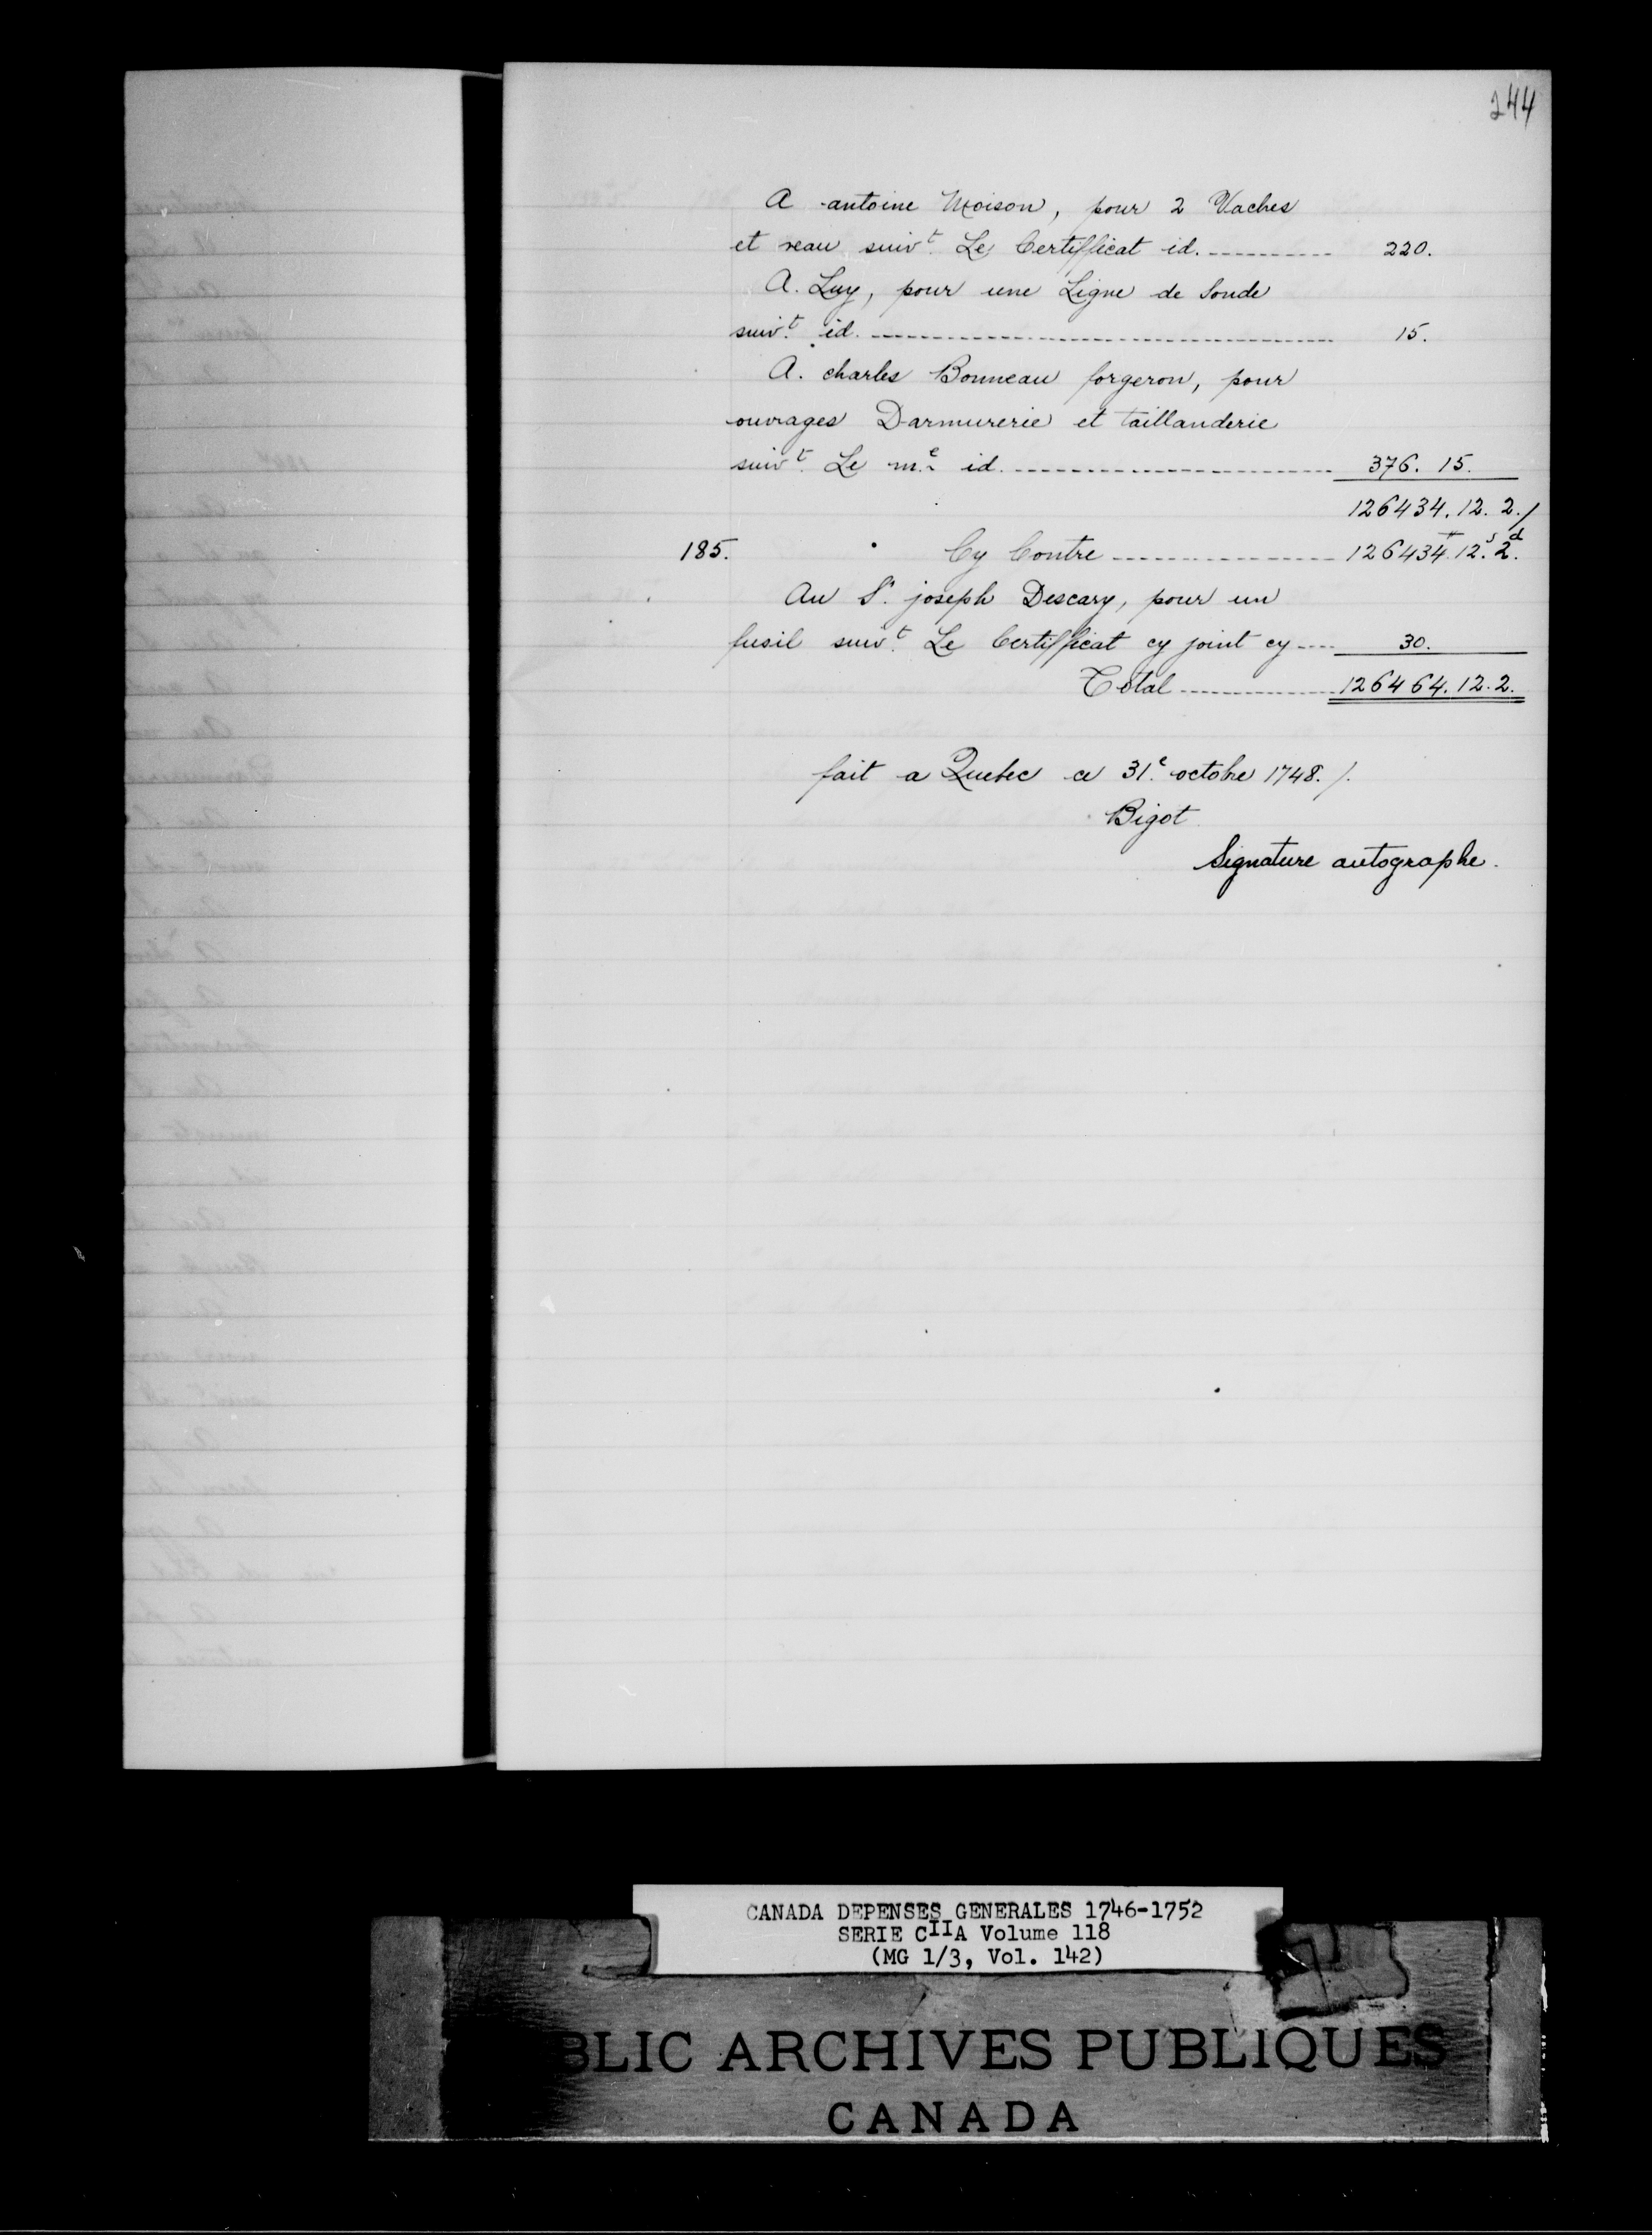 244
A antoine Moison, pour 2 Vaches
et veau suivt. Le Certifficat id. ---------- 220.
A. Luy, pour une Ligne de Sonde
suivt. id. ---------- 15.
A. charles Bonneau forgeron, pour
ouvrages Darmurerie et taillanderie
suivt. Le me. id. ---------- 376. 15.
126434. 12. 2./
185. Cy Contre ---------- 126434.# 12.s 2.d
Au Sr. joseph Descary, pour un
fusil suivt. Le Certifficat cy joint cy ---- 30.
Total ---------- 126464. 12. 2.
fait a Quebec ce 31e. octobre 1748. /.
Bigot
Signature autographe.
CANADA DEPENSES GENERALES 1746-1752
SERIE CIIA Volume 118
(MG 1/3, Vol. 142)
BLIC ARCHIVES PUBLIQUES
CANADA